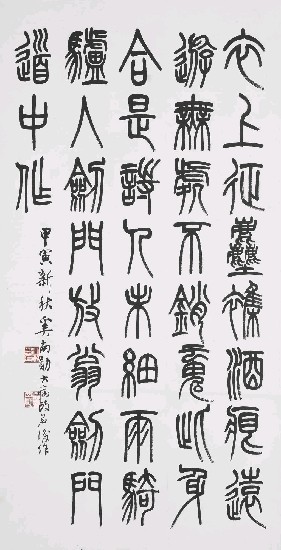 衣上征塵雜酒痕遠
遊無處不銷魂此身
合是詩人未細雨騎
驢入劍門放翁劍門
道中作
甲寅新秋奚南勛大病後作